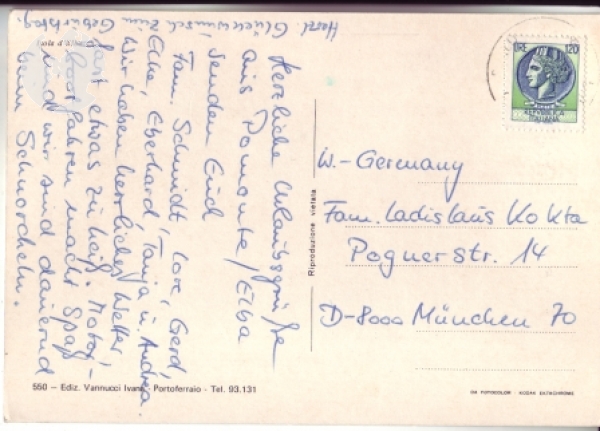 Herzl. Glückwunsch zum Geburtstag.
Isola d'Elba
Herzliche Urlaubsgrüße
aus Pomonte / Elba
senden Euch
Fam. Schmidt, Lore, Gerd,
Elke, Eberhard, Tanja u. Andrea
Wir haben herrliches Wetter
fast etwas zu heiß. Motor-
boot fahren macht Spaß
und wir sind dauernd
beim Schnorcheln.
LIRE 120
REPUBBLICA
ITALIANA
W.-Germany
Fam. Ladislaus Kokta
Pognerstr. 14
D-8000 München 70
Riproduzione vietata
550 — Ediz. Vannucci Ivana - Portoferraio - Tel. 93.131
DA FOTOCOLOR - KODAK EKTACHROME